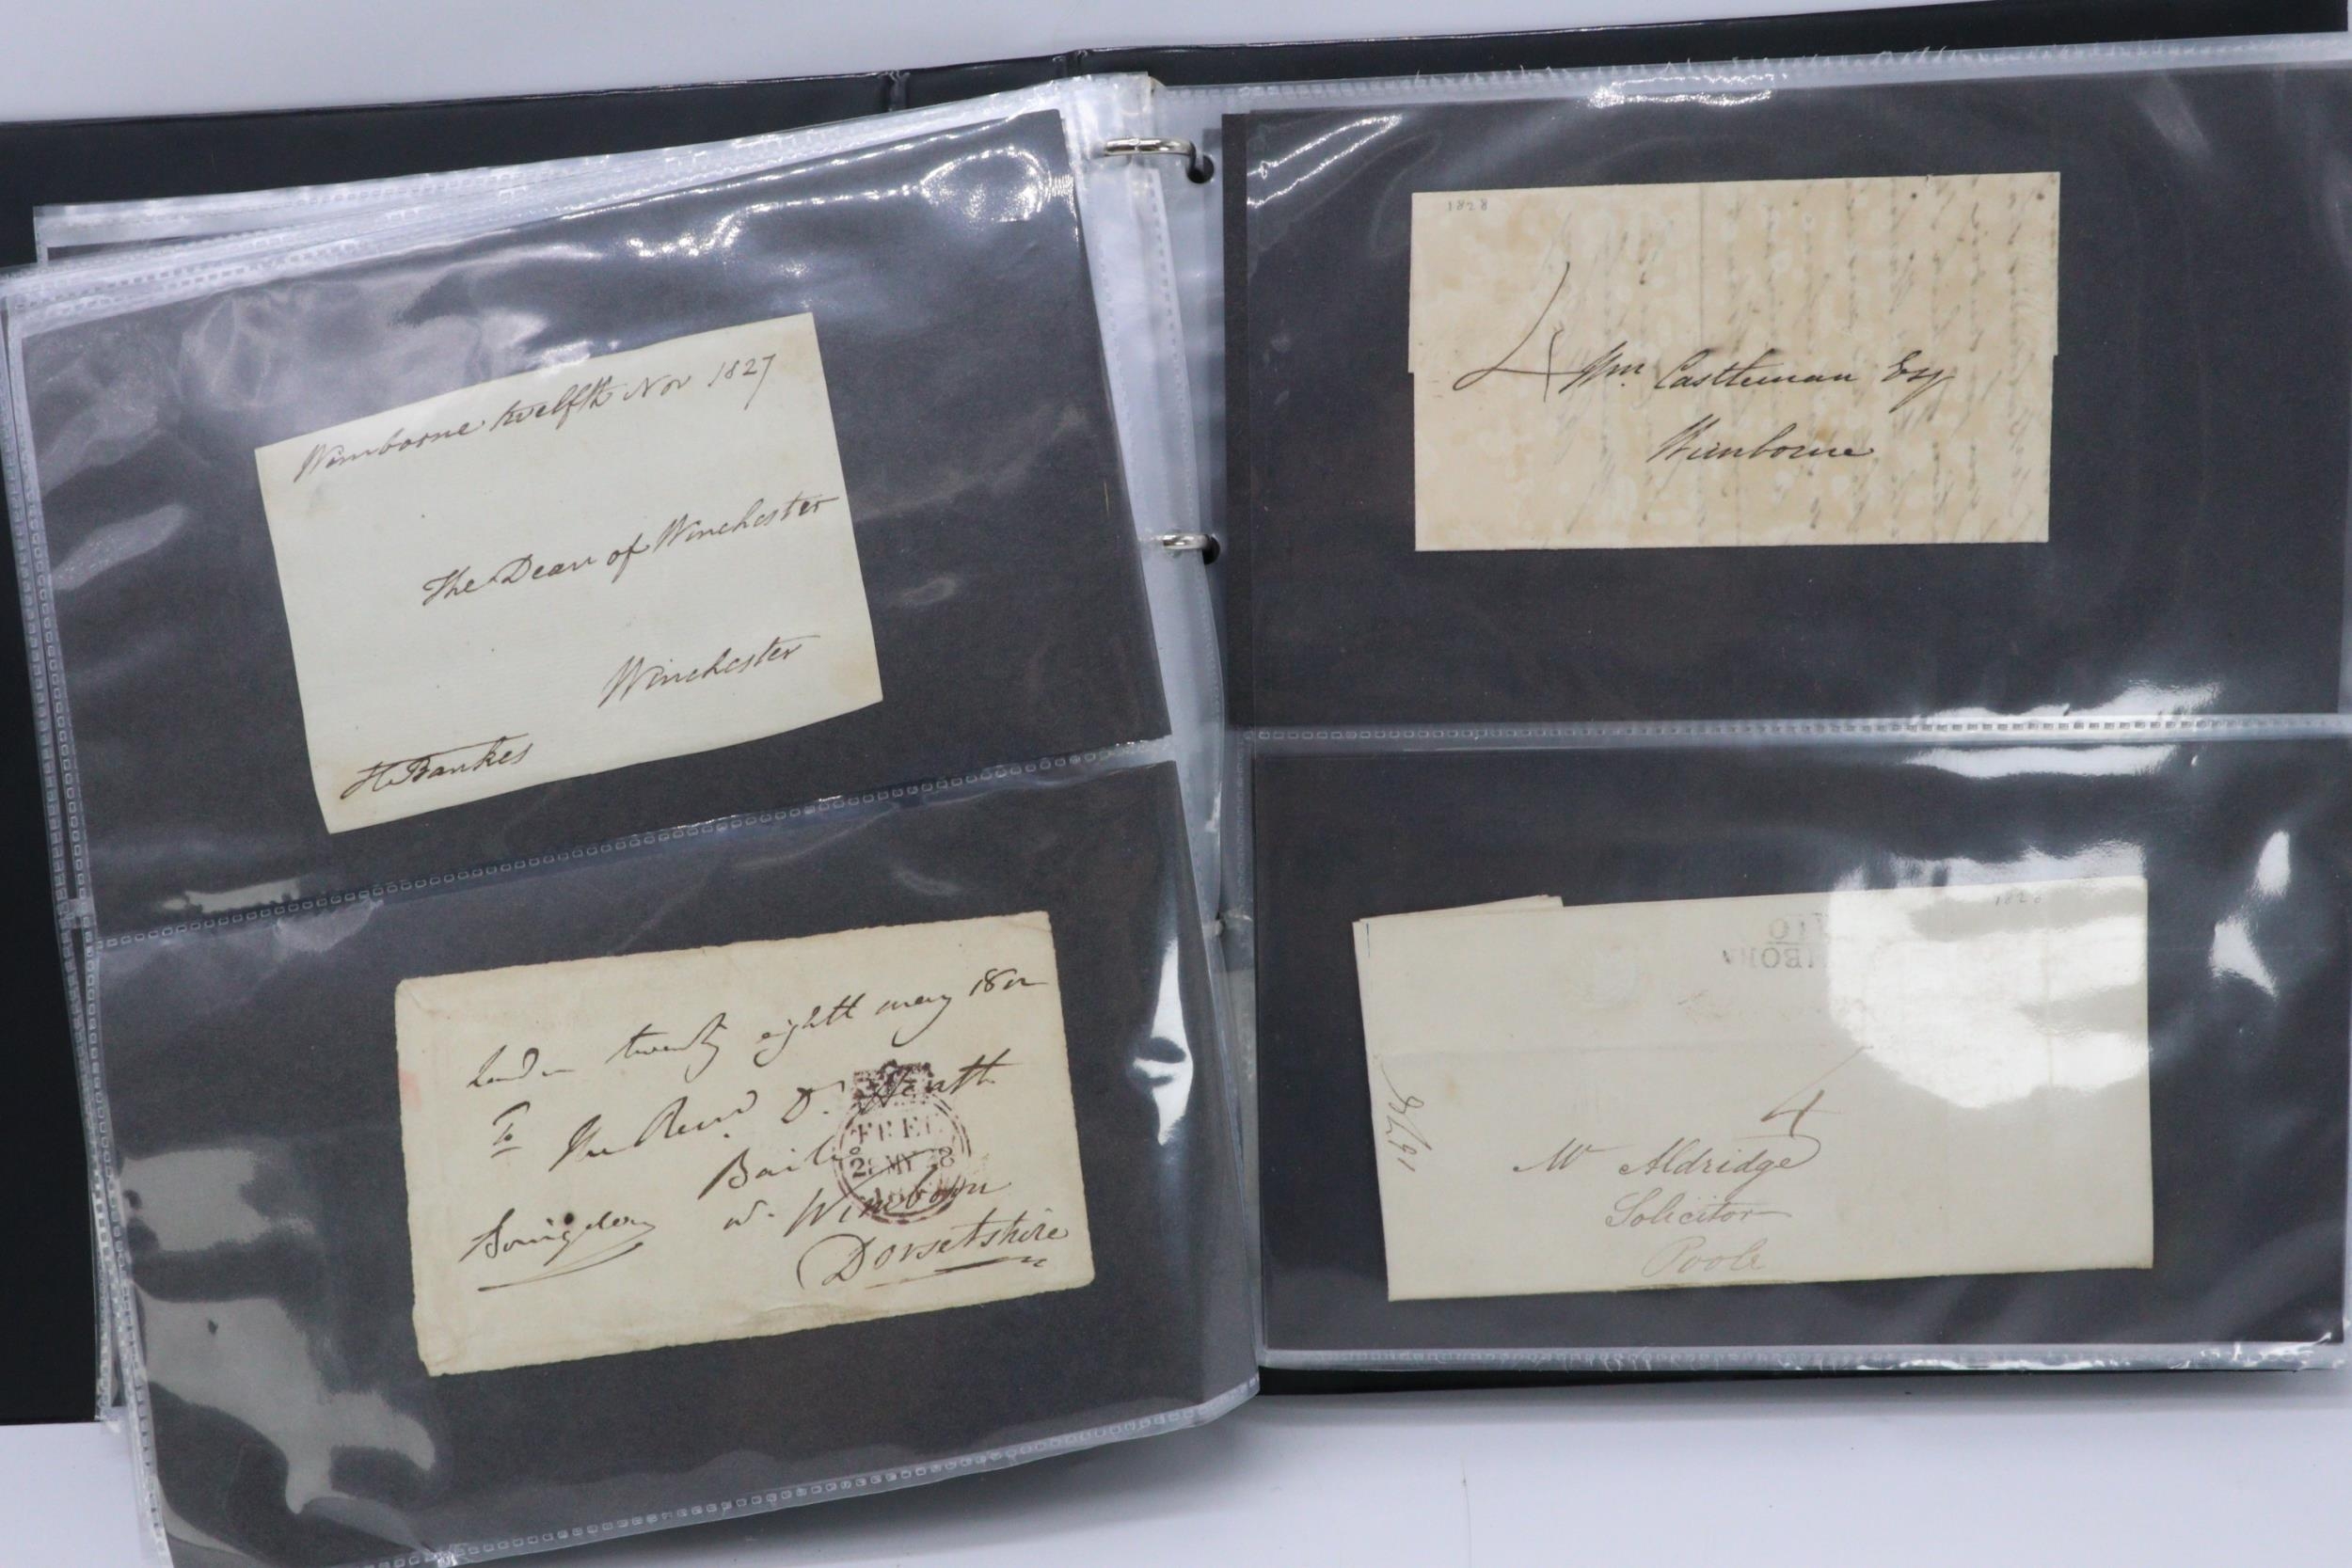 Wimborne twelfth Nov 1827
The Dean of Winchester
Winchester
H Bankes
London twenty eighth may 180
To The Revd Dr. Heath
FREE
MY
w. Wimborn
Dorsetshire
1828
4
Wm. Castleman Esq
Wimborne
182
4
Mr Aldridge
Solicitor
Poole